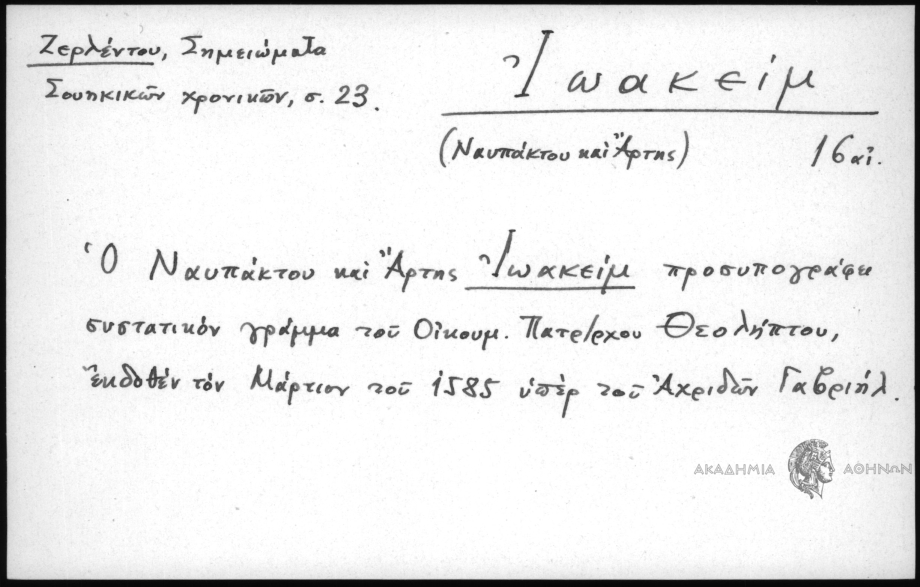 Ζερλέντου, Σημειώματα
Σουηκικῶν χρονικῶν, σ. 23.
Ἰωακείμ
(Ναυπάκτου καὶ Ἄρτης) 16 αἰ.
Ὁ Ναυπάκτου καὶ Ἄρτης Ἰωακείμ προσυπογράφει
συστατικόν γράμμα τοῦ Οἰκουμ. Πατρ/ρχου Θεολήπτου,
ἐκδοθέν τόν Μάρτιον τοῦ 1585 ὑπέρ τοῦ Ἀχριδῶν Γαβριήλ.
ΑΚΑΔΗΜΙΑ ΑΘΗΝΩΝ